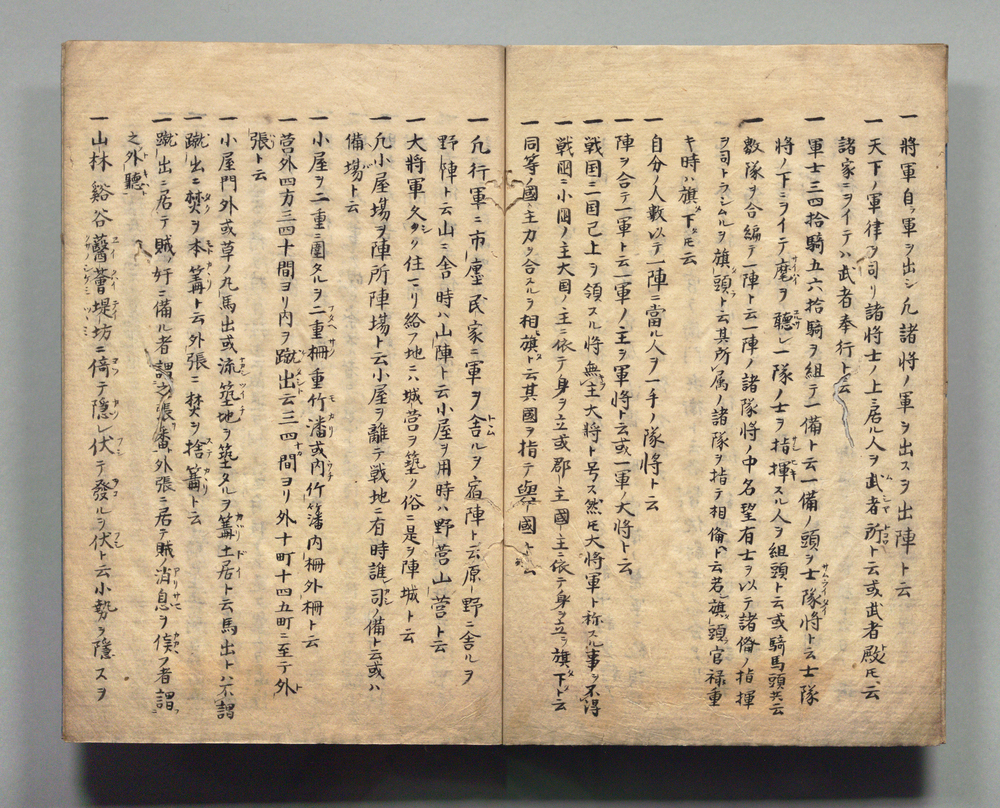 一將軍自ラ軍ヲ出シ凡諸將ノ軍ヲ出スヲ出陣ト云
一天下ノ軍律ヲ司リ諸將士ノ上ニ居ル人ヲ武者所ト云或武者殿トモ云
諸家ニヲイテハ武者奉行ト云
一軍士三四拾騎五六拾騎ヲ組テ一備ト云一備ノ頭ヲ士隊將ト云士隊
將ノ下ニヲイテ麾ヲ聽シ一隊ノ士ヲ指揮スル人ヲ組頭ト云或騎馬頭共云
一數隊ヲ合編テ一陣ト云一陣ノ諸隊將ノ中名望有士ヲ以テ諸備ノ指揮
ヲ司トラシムルヲ旗頭ト云其所属ノ諸隊ヲ指テ相備ト云若旗頭官禄重
キ時ハ旗下トモ云
一自分ノ人數以テ一陣ニ當ル人ヲ一手ノ隊將ト云
一陣ヲ合テ一軍ト云一軍ノ主ヲ軍將ト云或一軍ノ大將ト云
一戦国二国已上ヲ領スル將無主大將ト号ス然トモ大將軍ト称スル事ヲ不得
一戦国ニ小国ノ主大国ノ主ニ依テ身ヲ立或郡主國主ニ依テ身ヲ立ヲ旗下ト云
一同等ノ國主力ヲ合スルヲ相旗ト云其國ヲ指テ與國ト云
一凡行軍ニ市廛民家ニ軍ヲ舎ルヲ宿陣ト云原野ニ舎ルヲ
野陣ト云山ニ舎時ハ山陣ト云小屋ヲ用時ハ野営山営ト云
一大將軍久ク住リ給フ地ニハ城営ヲ築ク俗ニ是ヲ陣城ト云
一凡小屋場ヲ陣所陣場ト云小屋ヲ離テ戦地ニ有時誰司備ト云或ハ
備場ト云
一小屋ヲ二重ニ圍タルヲ二重柵重竹藩或内竹籓内柵外柵ト云
一営外四方三四十間ヨリ内ヲ蹴出云三四十間ヨリ外十町十四五町ニ至テ外
張ト云
一小屋門外或草ノ丸馬出或流築地ヲ築タルヲ篝土居ト云馬出トハ不謂
一蹴出ニ焚ヲ本篝ト云外張ニ焚ヲ捨篝ト云
一蹴出ニ居テ賊奸ニ備ル者謂之張番外張ニ居テ賊ノ消息ヲ候フ者謂
之外聽
一山林谿谷蘙薈堤坊ニ倚テ隠レ伏テ發ルヲ伏ト云小勢ヲ隠スヲ